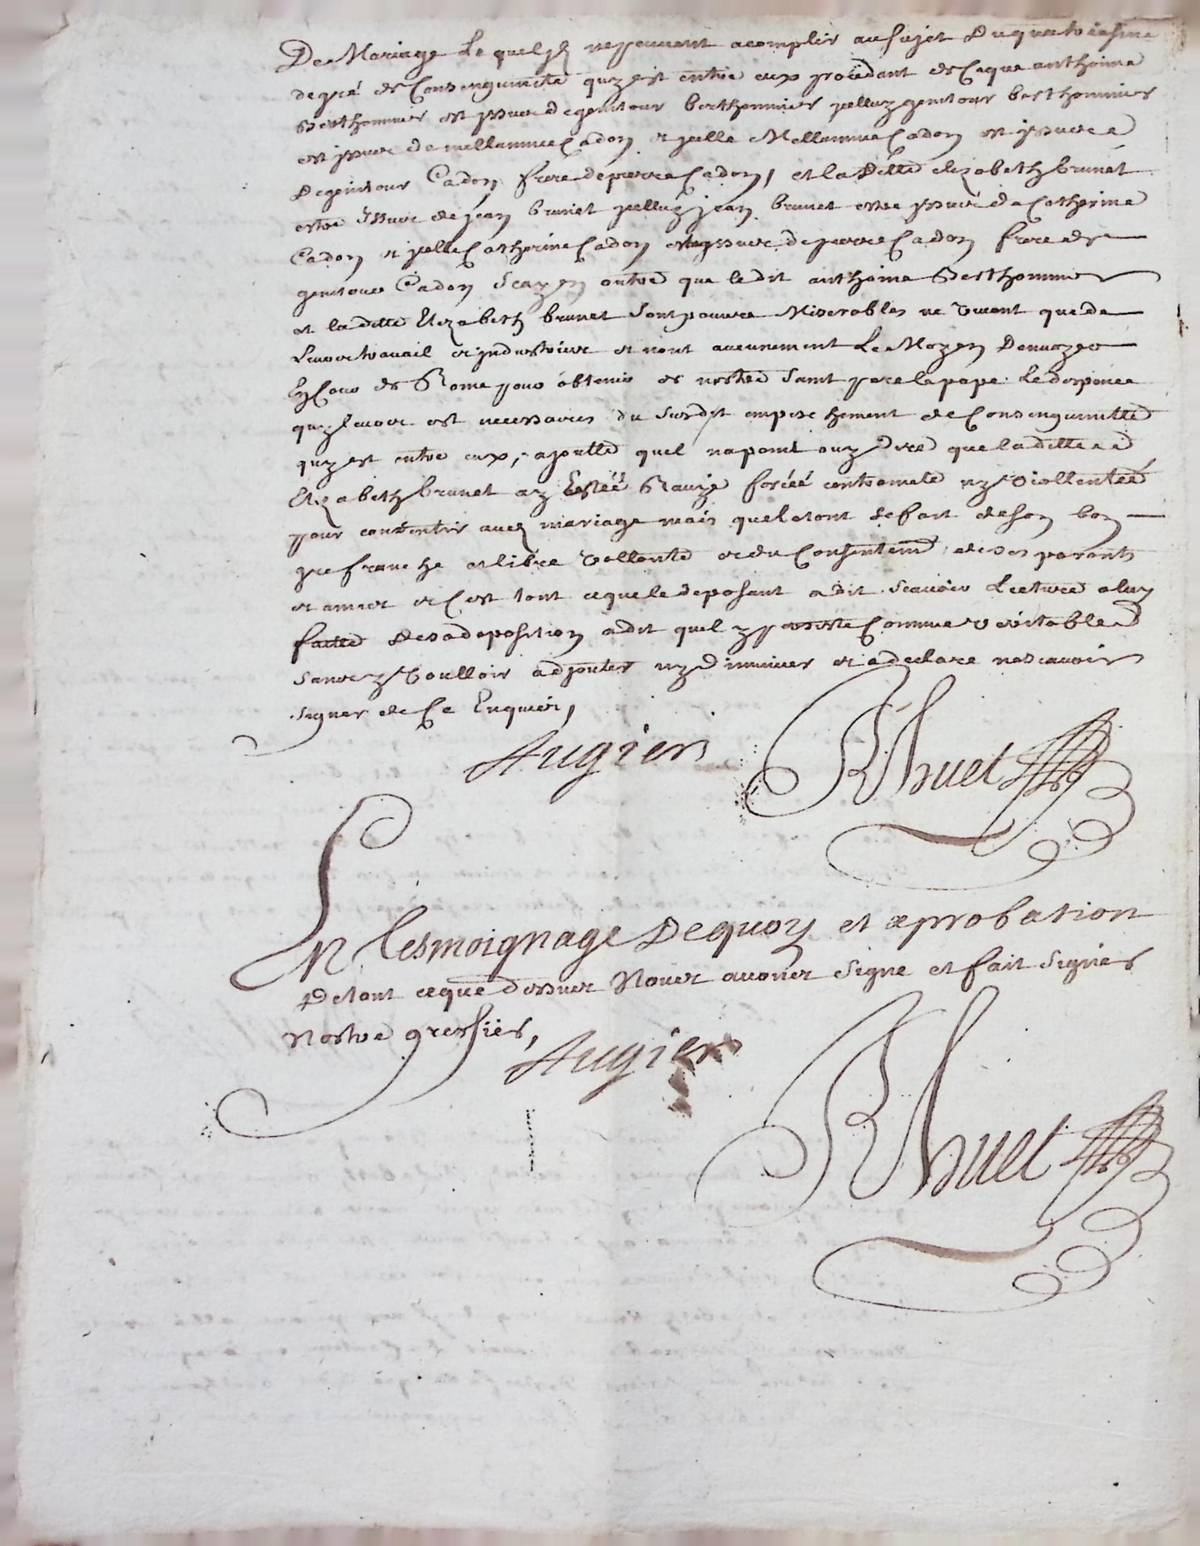 De Mariage Le quel Ilz ne peuvent acomplir au sujet du quatriesme
degré de Consenguinitté quy est entre eux procedant de Ce que anthoine
Berthommier est yssue de genitour berthommier yelluy genitour berthommier
est yssue de mellannie Cadon et yelle Mellannie Cadon est yssuee
de genitour Cadon frere de pierre Cadon, et la ditte elizabeth brunet
estre Issue de jean brunet yelluy jean brunet estre yssue de Catherine
Cadon et yelle Catherine Cadon estre yssue de pierre Cadon frere de
genitour Cadon Scay en outre que le dit anthoine Berthommier
et la ditte Elizabeth brunet sont pauvre Miserables ne vivant que de
leur travail et industrie et nont aucunement Le Moyen Denvoyer
En Cour de Rome pour obtenir de nostre saint pere le pape Le dispence
quy leur est necessaires du susdit empeschement de Consenguinitté
quy est entre eux, ajoutte quel na point ouy dire que la ditte
Elizabeth brunet ay Estéé Ravye forcéé contrainte ny viollentéé
pour consentir aud mariage mais quel etont se fait de son bon
gre franche et libre vollonté et du Consentemt de ses parants
et amier et C'est tout ce que le deposant a dit scavoir Lecture a luy
faitte de sa deposition a dit quel y perciste Comme veritable
sans y voulloir adjouter ny diminuer et a declare ne scavoir
signer de Ce Enquier,
Augier Rhuet
En tesmoignage de quoy et aprobation
De tout ce que dessuer Nouer avoner signe et fait signer
Nostre greffier,
Augier
Rhuet